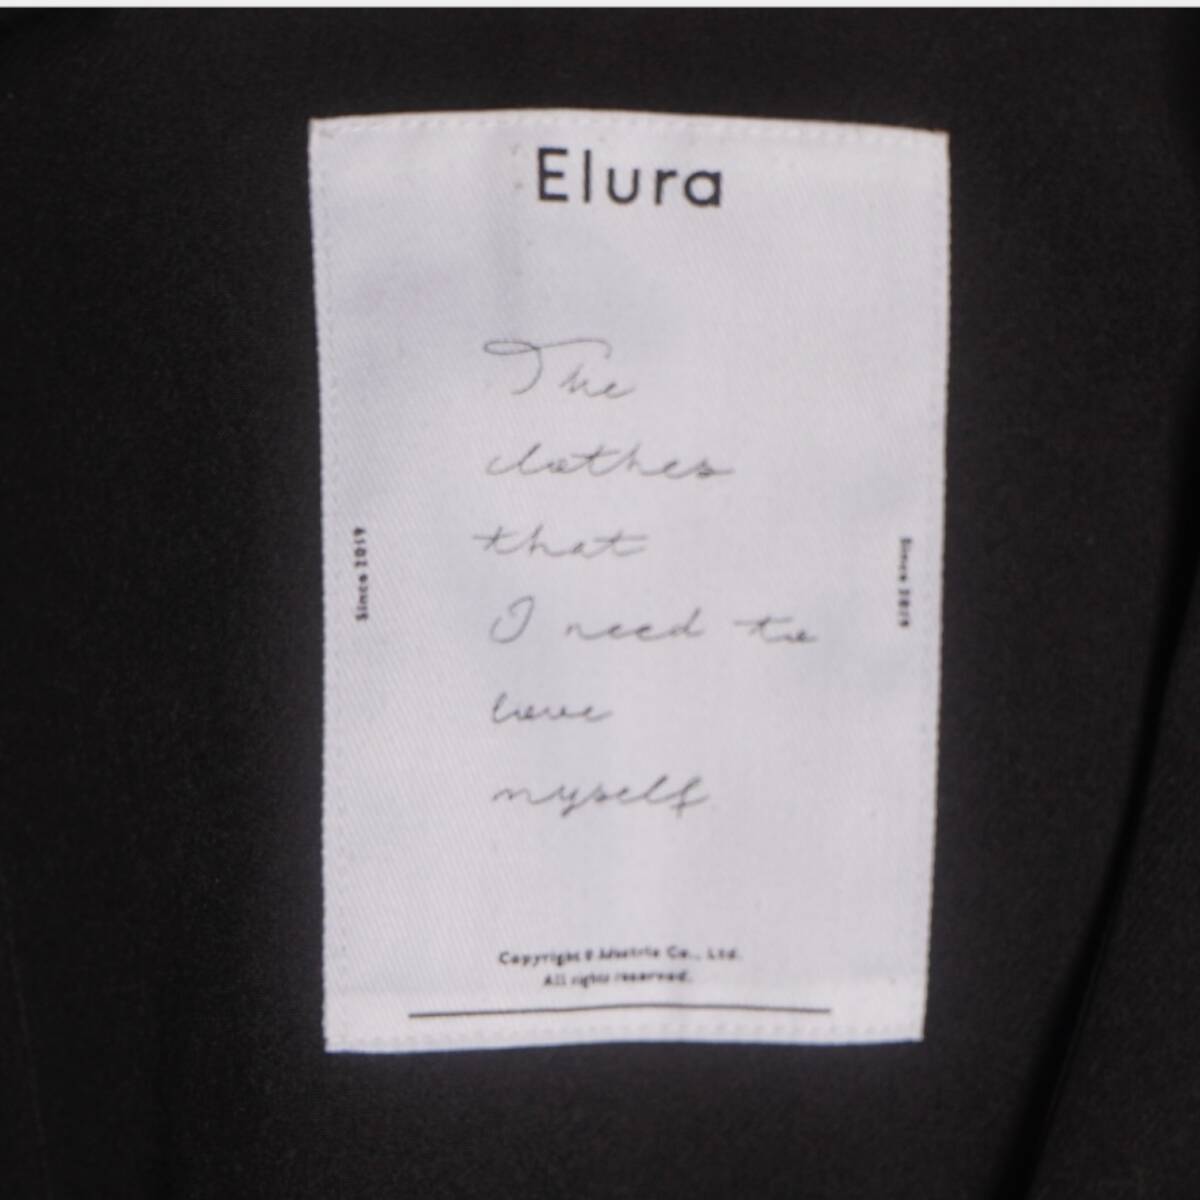 Elura
The
clothes
that
I need to
love
myself
Since 2019
Since 2019
Copyright © Co., Ltd.
All rights reserved.